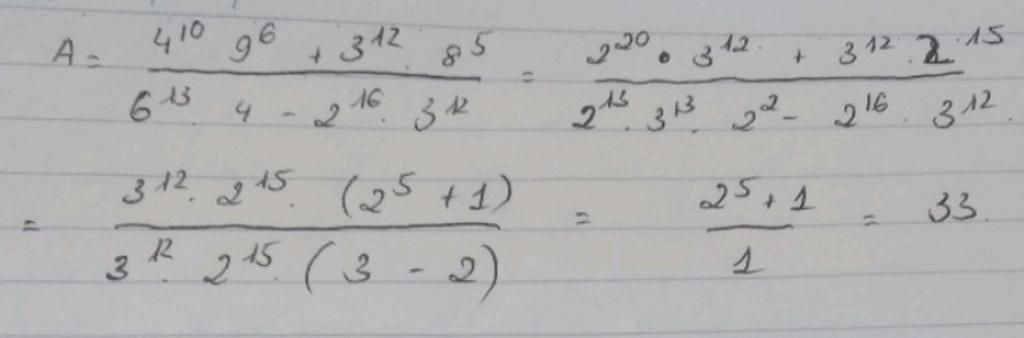 A = \frac{4^{10} \cdot 9^{6} + 3^{12} \cdot 8^{5}}{6^{13} \cdot 4 - 2^{16} \cdot 3^{12}} = \frac{2^{20} \cdot 3^{12} + 3^{12} \cdot 2^{15}}{2^{13} \cdot 3^{13} \cdot 2^{2} - 2^{16} \cdot 3^{12}}
= \frac{3^{12} \cdot 2^{15} \cdot (2^{5} + 1)}{3^{12} \cdot 2^{15} \cdot (3 - 2)} = \frac{2^{5} + 1}{1} = 33.